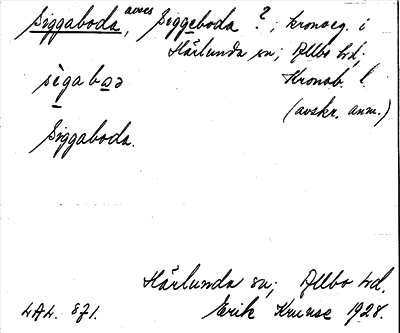 Siggaboda, avses Siggeboda ?; kronoeg. i
Härlunda sn; Allbo hd;
sègaboə Kronob. l.
(avskr. anm.)
Siggaboda.
Härlunda sn; Allbo hd.
LAL. 871. Erik Kruuse 1928.